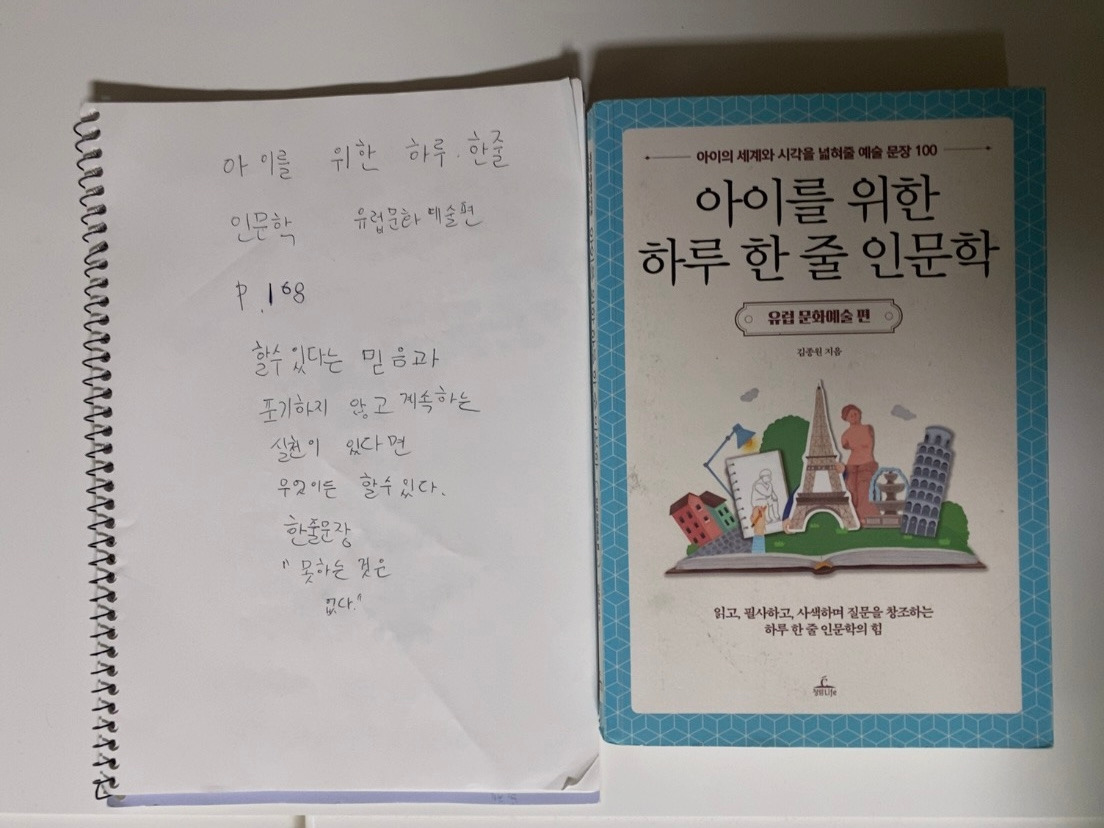 아이를 위한 하루 한줄
인문학 유럽문화예술편
P.168
할수있다는 믿음과
포기하지 않고 계속하는
실천이 있다면
무엇이든 할수있다.
한줄문장
"못하는 것은
없다."
아이의 세계와 시각을 넓혀줄 예술 문장 100
아이를 위한
하루 한 줄 인문학
유럽 문화예술 편
김종원 지음
읽고, 필사하고, 사색하며 질문을 창조하는
하루 한 줄 인문학의 힘